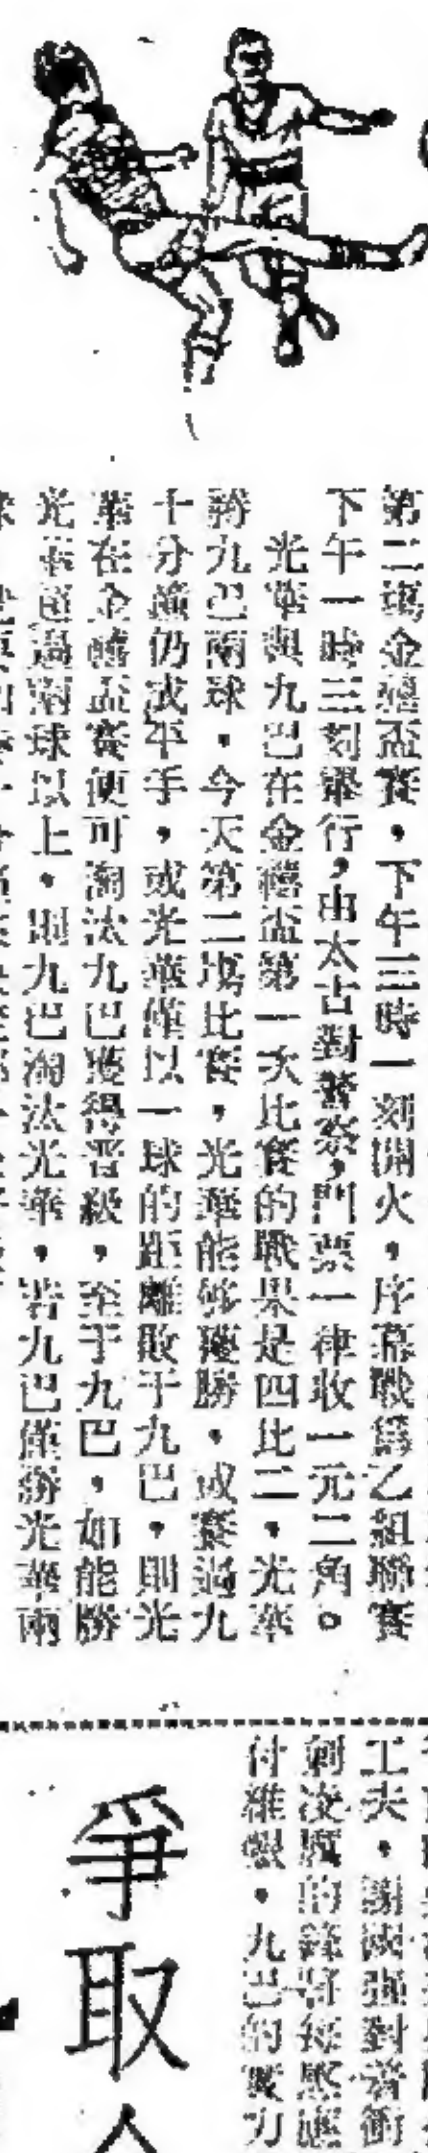 第二場金禧盃賽，下午三時一刻開火，序幕戰爲乙組聯賽
下午一時三刻舉行，由太古對警察，門票一律收一元二角。
光華與九巴在金禧盃第一次比賽的戰果是四比二，光華
勝九巴兩球，今天第二場比賽，光華能够獲勝，或賽過九
十分鐘仍成平手，或光華僅以一球的距離敗于九巴，則光
華在金禧盃賽便可淘汰九巴獲得晋級，至于九巴，如能勝
光華超過兩球以上，則九巴淘汰光華，若九巴僅勝光華兩
工夫，謝國強對着衝
刺凌厲的鋒將
付維艱，九巴的實力
爭取